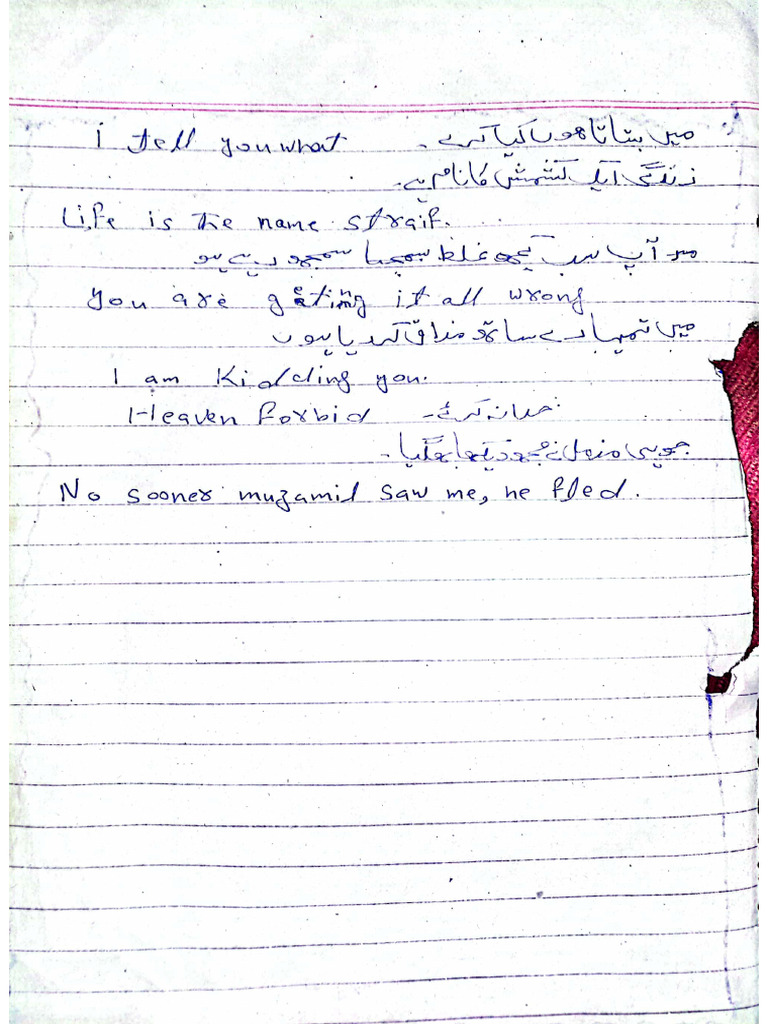 i tell you what میں بتاتا ہوں کیا کرے ۔
زندگی ایک کشمکش کا نام ہے۔
Life is the name straif.
آپ سب کچھ غلط سمجھ رہے ہو
you are getting it all wrong
میں تمہارے ساتھ مذاق کر رہا ہوں
I am Kidding you.
Heaven forbid خدا نہ کرئے ۔
جوہی مزمل نے مجھ دیکھا بھاگ گیا ۔
No sooner muzamil saw me, he fled.